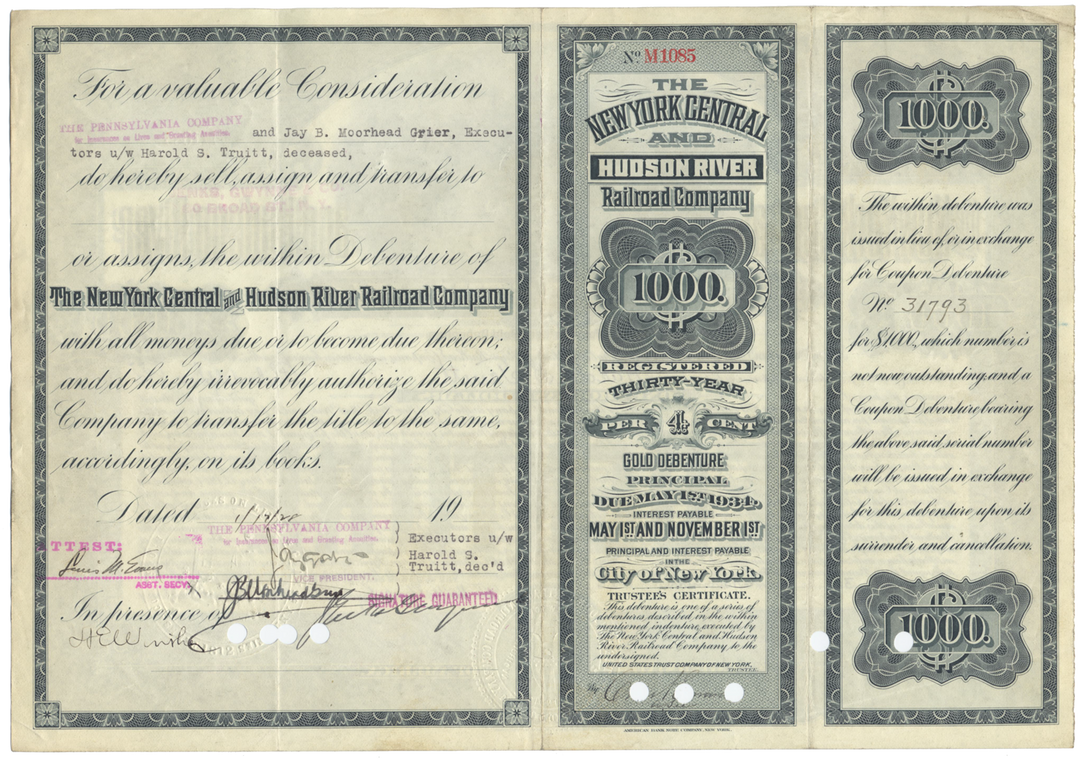 For a valuable Consideration
THE PENNSYLVANIA COMPANY
for Insurances on Lives and Granting Annuities.
and Jay B. Moorhead Grier, Execu-
tors u/w Harold S. Truitt, deceased,
do hereby sell, assign and transfer to
BROAD ST. N.Y.
or assigns, the within Debenture of
The New York Central and Hudson River Railroad Company
with all moneys due or to become due thereon;
and do hereby irrevocably authorize the said
Company to transfer the title to the same,
accordingly, on its books.
Dated 19
THE PENNSYLVANIA COMPANY
for Insurances on Lives and Granting Annuities.
) Executors u/w
) Harold S.
) Truitt, dec'd
ATTEST:
VICE PRESIDENT.
ASST. SECY.
SIGNATURE GUARANTEED
In presence of
No. M1085
THE
NEW YORK CENTRAL
AND
HUDSON RIVER
Railroad Company
$
1000.
REGISTERED
THIRTY-YEAR
4
PER CENT
GOLD DEBENTURE
PRINCIPAL
DUE MAY 1ST, 1934.
INTEREST PAYABLE
MAY 1ST AND NOVEMBER 1ST
PRINCIPAL AND INTEREST PAYABLE
IN THE
City of New York.
TRUSTEE'S CERTIFICATE.
This debenture is one of a series of
debentures described in the within
mentioned indenture, executed by
The New York Central and Hudson
River Railroad Company to the
undersigned.
UNITED STATES TRUST COMPANY OF NEW YORK,
TRUSTEE.
By
AMERICAN BANK NOTE COMPANY, NEW YORK.
$
1000.
The within debenture was
issued in lieu of, or in exchange
for Coupon Debenture
No. 31793
for $1,000, which number is
not now outstanding, and a
Coupon Debenture bearing
the above said serial number
will be issued in exchange
for this debenture upon its
surrender and cancellation.
$
1000.